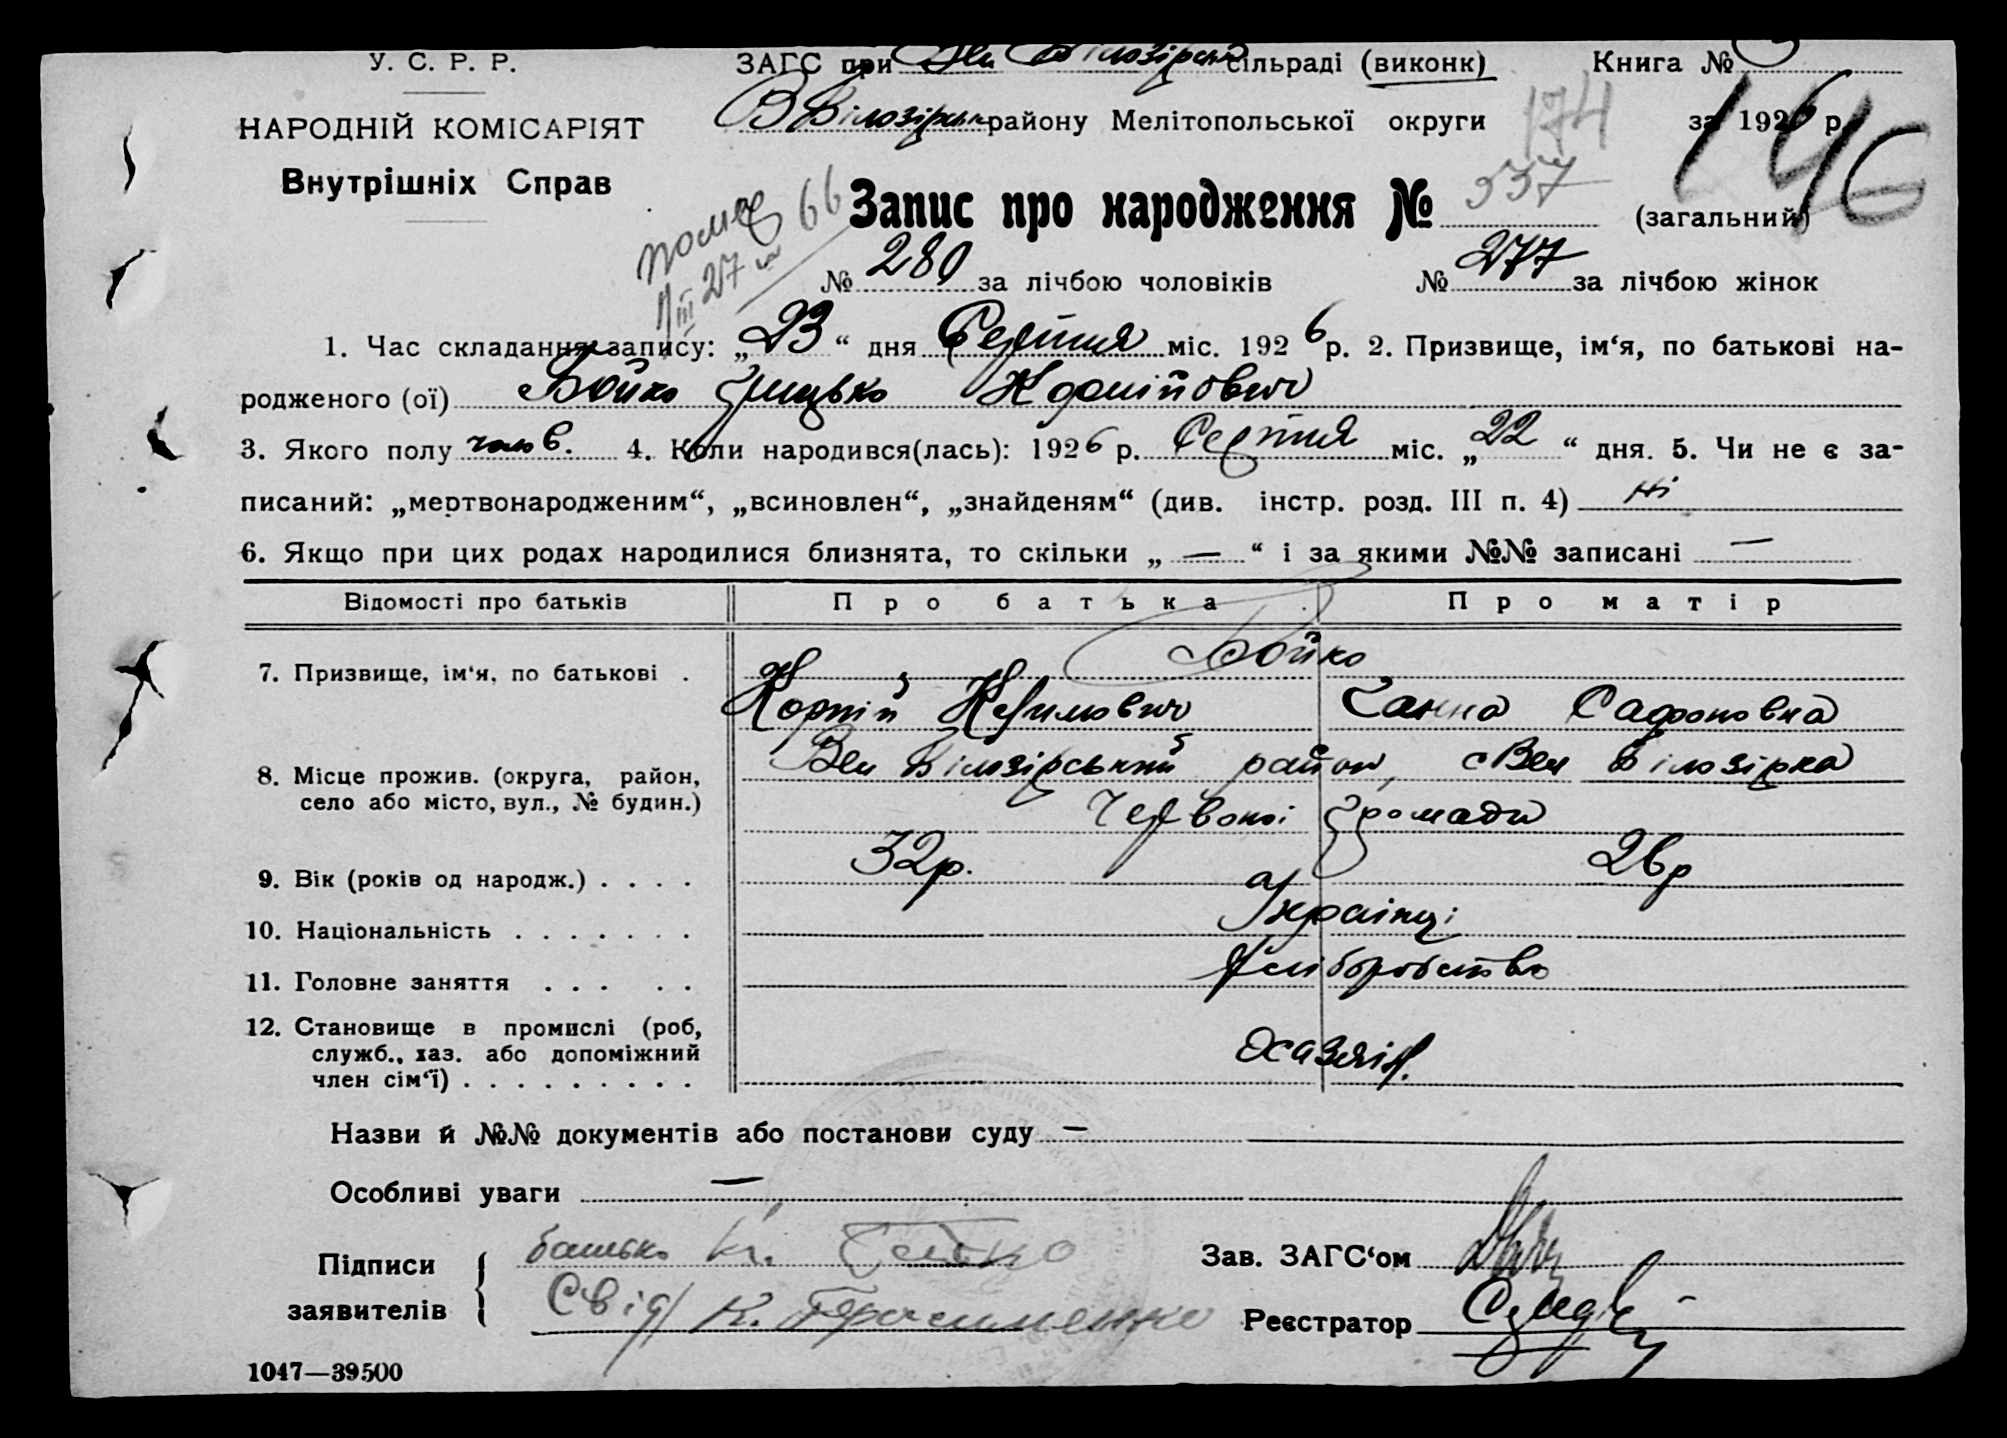 У. С. Р. Р.
ЗАГС при Вел Білозірськ сільраді (виконк) Книга №
НАРОДНІЙ КОМІСАРІЯТ
В Білозірськ району Мелітопольської округи 174 за 1926 р. 146
Внутрішніх Справ
66 Запис про народження № 557 (загальний)
№ 280 за лічбою чоловіків № 277 за лічбою жінок
III 27
1. Час складання запису: „23“ дня Серпня міс. 1926 р. 2. Призвище, ім‘я, по батькові на-
родженого (ої) Бойко Грицько Корнійович
3. Якого полу чолов. 4. Коли народився(лась): 1926 р. Серпня міс. „22“ дня. 5. Чи не є за-
писаний: „мертвонародженим“, „всиновлен“, „знайденям“ (див. інстр. розд. III п. 4) Ні
6. Якщо при цих родах народилися близнята, то скільки „—“ і за якими №№ записані —
Відомості про батьків Про батька Про матір
7. Призвище, ім‘я, по батькові . Бойко
Корній Климович Ганна Сафоновна
8. Місце прожив. (округа, район, Вел Білозірський район, с Вел Білозірка
село або місто, вул., № будин.) Червоної Громади
9. Вік (років од народж.) . . . . 32р. 26р
10. Національність . . . . . . . Українці
11. Головне заняття . . . . . Хліборобство
12. Становище в промислі (роб,
служб., хаз. або допоміжний
член сім‘ї) . . . . . . . . .
Назви й №№ документів або постанови суду —
Особливі уваги —
Підписи батько К. Бойко Зав. ЗАГС‘ом
заявителів Свід К. Герасименко Реєстратор
1047—39500